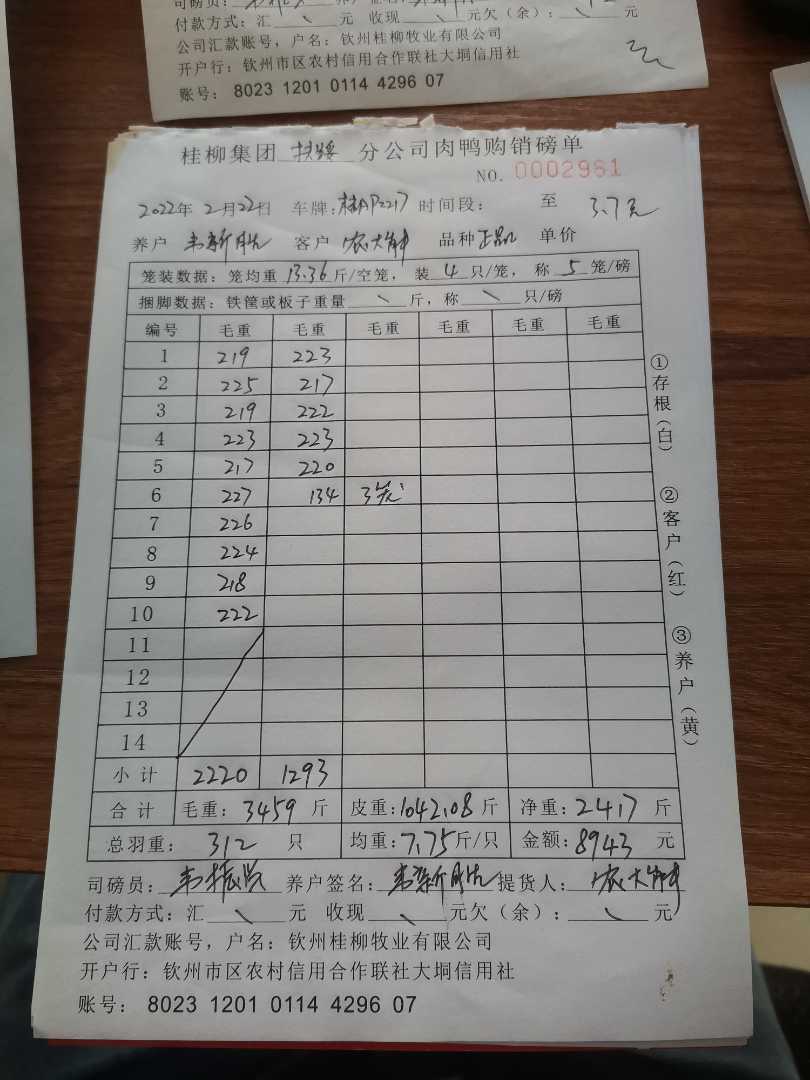 付款方式：汇 元 收现 元欠（余）： 元
公司汇款账号，户名：钦州桂柳牧业有限公司
开户行：钦州市区农村信用合作联社大垌信用社
账号： 8023 1201 0114 4296 07
桂柳集团 扶绥 分公司肉鸭购销磅单
NO. 0002981
2022年 2月22日 车牌： 时间段： 至 3.7元
养户 韦新胜 客户 农大 品种 单价
笼装数据：笼均重 13.36 斤/空笼，装 4 只/笼，称 5 笼/磅
捆脚数据：铁筐或板子重量 \ 斤，称 \ 只/磅
编号 毛重 毛重 毛重 毛重 毛重 毛重
1 219 223
2 225 217
3 219 222
4 223 223
5 217 220
6 227 134 3笼
7 226
8 224
9 218
10 222
11
12
13
14
小计 2220 1293
合计 毛重：3459 斤 皮重：1042.08 斤 净重：2417 斤
总羽重： 312 只 均重：7.75斤/只 金额：8943 元
司磅员：韦振 养户签名：韦新胜 提货人：农大
付款方式：汇 \ 元 收现 \ 元欠（余）： \ 元
公司汇款账号，户名：钦州桂柳牧业有限公司
开户行：钦州市区农村信用合作联社大垌信用社
账号： 8023 1201 0114 4296 07
①存根（白）
②客户（红）
③养户（黄）